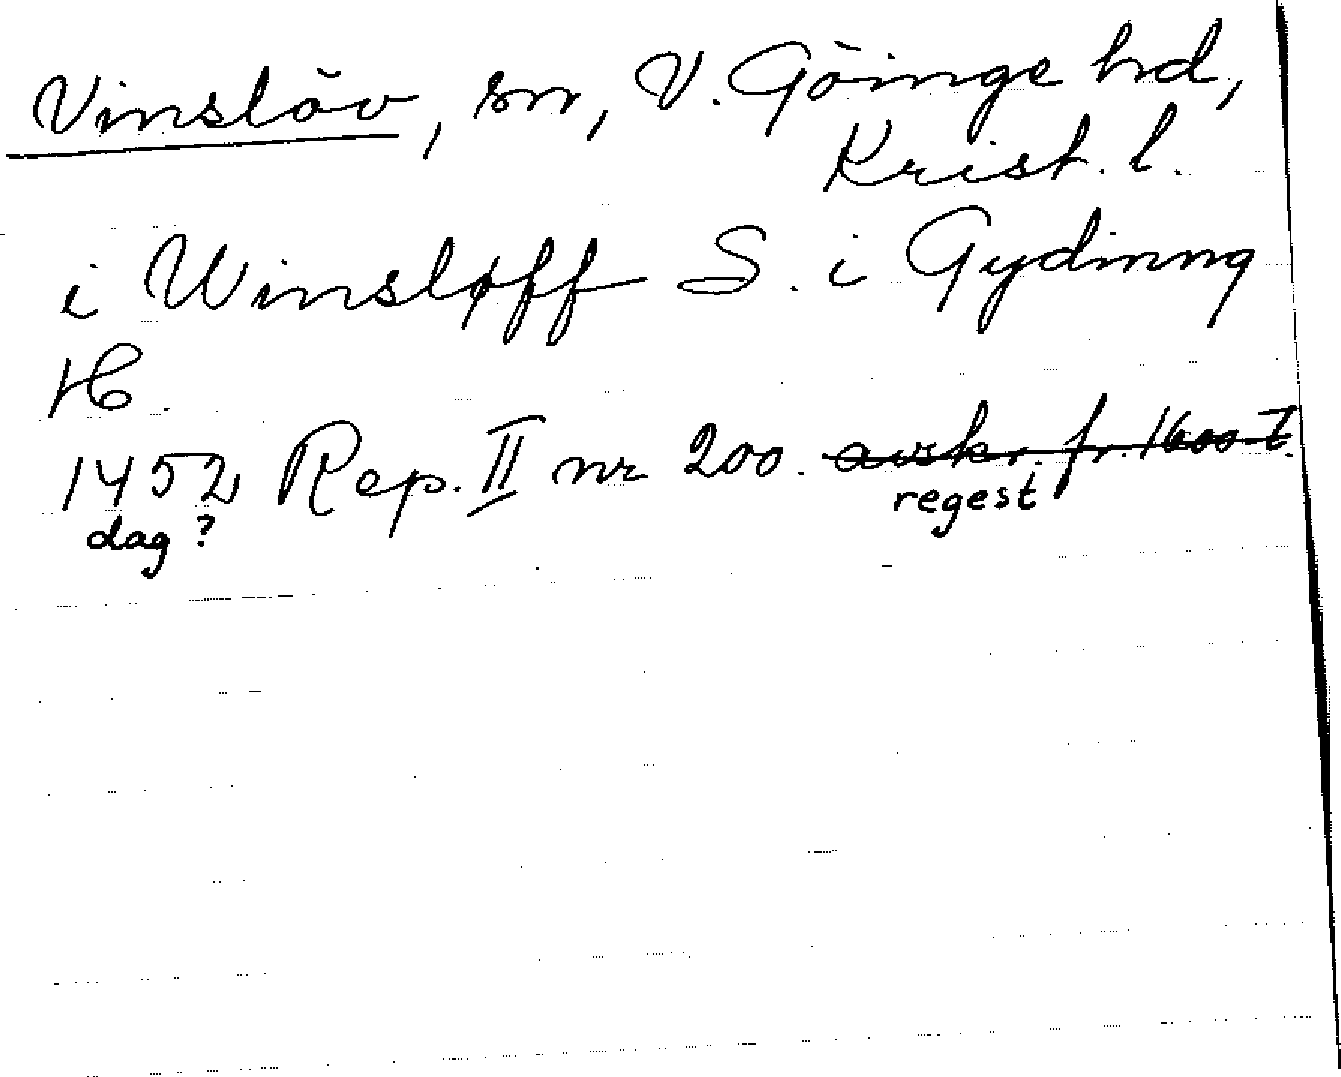 Vinslöv, sn, V. Göinge hd,
Krist. l.
i Winsløff S. i Gydinng
H.
1452 Rep. II nr 200. avskr. fr. 1600-t.
dag? regest